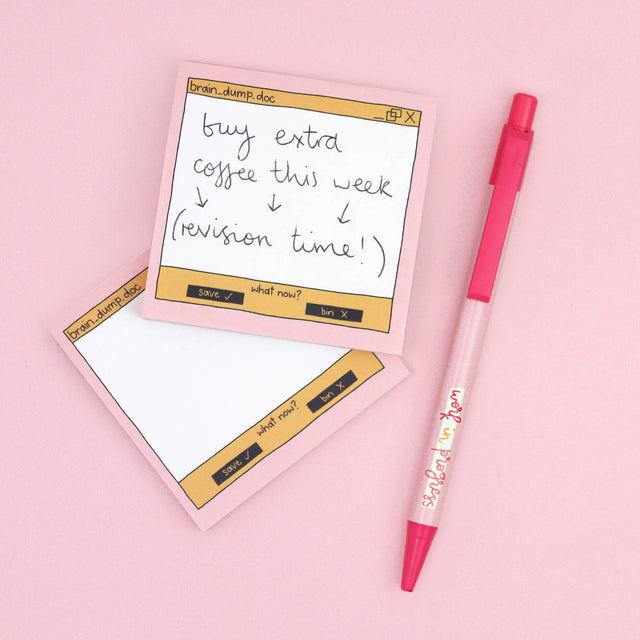 brain_dump.doc
buy extra
coffee this week
(revision time!)
what now?
save ✓
bin X
brain_dump.doc
what now?
save ✓
bin X
work in progress